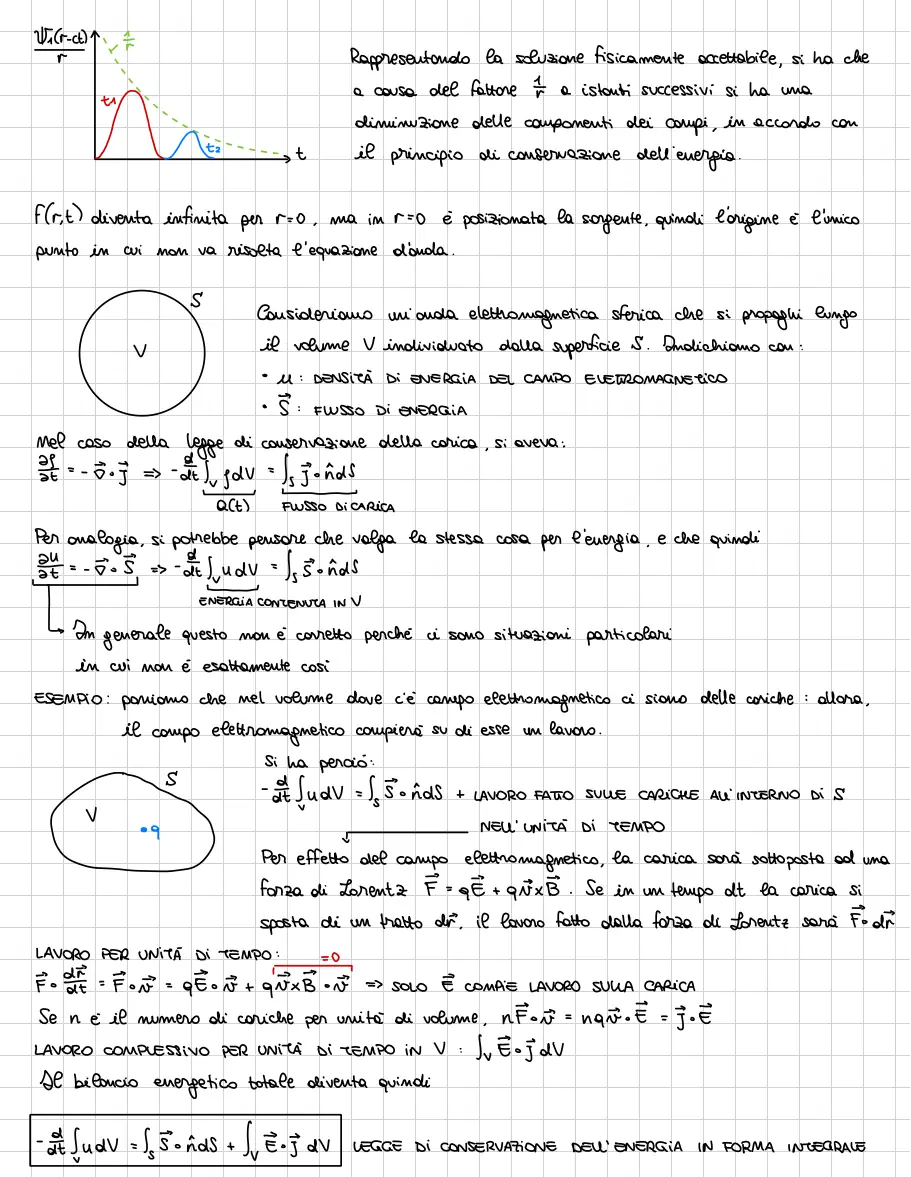 Ψ₁(r-ct)/r
1/r
t₁
t₂
t
Rappresentando la soluzione fisicamente accettabile, si ha che
a causa del fattore 1/r a istanti successivi si ha una
diminuzione delle componenti dei campi, in accordo con
il principio di conservazione dell'energia.
f(r,t) diventa infinita per r=0, ma in r=0 è posizionata la sorgente, quindi l'origine è l'unico
punto in cui non va risolta l'equazione d'onda.
S
V
Consideriamo un'onda elettromagnetica sferica che si propaghi lungo
il volume V individuato dalla superficie S. Indichiamo con:
• u: DENSITÀ DI ENERGIA DEL CAMPO ELETTROMAGNETICO
• S⃗: FLUSSO DI ENERGIA
Nel caso della legge di conservazione della carica, si aveva:
∂ρ/∂t = -∇⃗∘J⃗ => -d/dt ∫_V ρdV = ∫_S J⃗∘n̂dS
Q(t) FLUSSO DI CARICA
Per analogia, si potrebbe pensare che valga la stessa cosa per l'energia, e che quindi
∂u/∂t = -∇⃗∘S⃗ => -d/dt ∫_V udV = ∫_S S⃗∘n̂dS
ENERGIA CONTENUTA IN V
In generale questo non è corretto perché ci sono situazioni particolari
in cui non è esattamente così
ESEMPIO: poniamo che nel volume dove c'è campo elettromagnetico ci siano delle cariche: allora,
il campo elettromagnetico compierà su di esse un lavoro.
S
V
•q
Si ha perciò:
-d/dt ∫_V udV = ∫_S S⃗∘n̂dS + LAVORO FATTO SULLE CARICHE ALL'INTERNO DI S
NELL'UNITÀ DI TEMPO
Per effetto del campo elettromagnetico, la carica sarà sottoposta ad una
forza di Lorentz F⃗ = qE⃗ + qv⃗×B⃗. Se in un tempo dt la carica si
sposta di un tratto dr⃗, il lavoro fatto dalla forza di Lorentz sarà F⃗∘dr⃗
LAVORO PER UNITÀ DI TEMPO: =0
F⃗∘dr⃗/dt = F⃗∘v⃗ = qE⃗∘v⃗ + qv⃗×B⃗∘v⃗ => SOLO E⃗ COMPIE LAVORO SULLA CARICA
Se n è il numero di cariche per unità di volume, nF⃗∘v⃗ = nqv⃗∘E⃗ = J⃗∘E⃗
LAVORO COMPLESSIVO PER UNITÀ DI TEMPO IN V: ∫_V E⃗∘J⃗ dV
Il bilancio energetico totale diventa quindi
-d/dt ∫_V udV = ∫_S S⃗∘n̂dS + ∫_V E⃗∘J⃗ dV LEGGE DI CONSERVAZIONE DELL'ENERGIA IN FORMA INTEGRALE